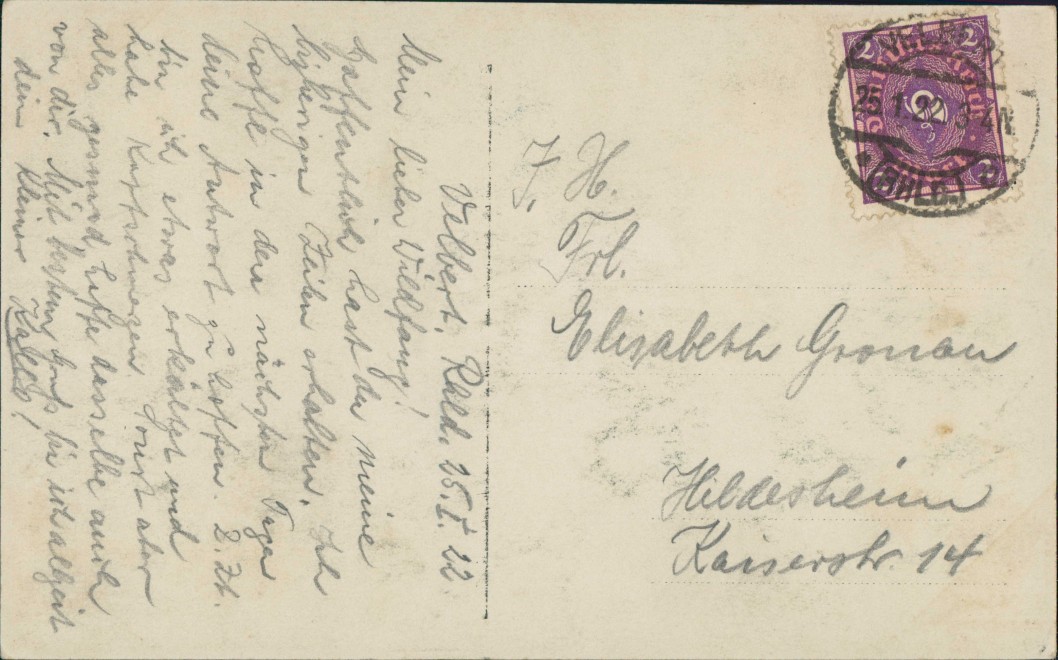 Velbert, Rhld. 25.I.22
Mein lieber Wildfang!
Hoffentlich hast du meine
bisherigen Zeilen erhalten. Ich
hoffe in den nächsten Tagen
deine Antwort zu hoffen. Z. Zt.
bin ich etwas erkältet und
habe Kopfschmerzen sonst aber
alles gesund, hoffe dasselbe auch
von dir. Mit besten bin ich allzeit
dein kleiner
J. H.
Frl.
Elisabeth Gronau
Hildesheim
Kaiserstr. 14
VELBERT
25.1.22. 3-4N
(RHLD.)
2
2
Deutsches Reich
2
2